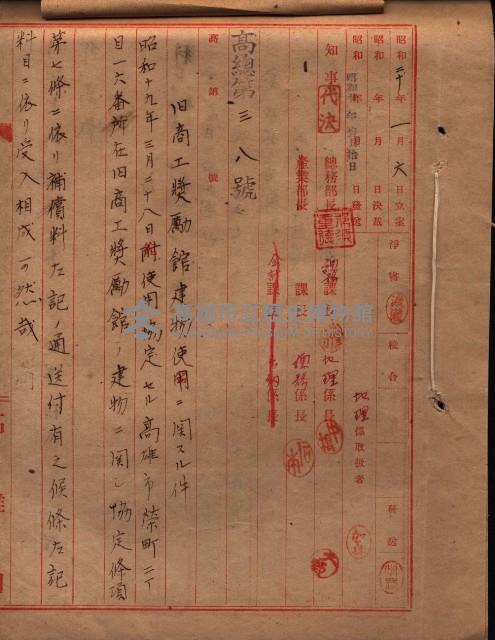 昭和二十年一月六日立案 浄書 校合 発送
昭和 年 月 日決裁
昭和 年 月 日発送
地理係取扱者
知事 代決 総務部長 課長 地理係長
産業部長 課長 債務係長
会計課長 係長
高總第三八號
高 第 號
旧商工奬勵館建物使用ニ関スル件
昭和十九年三月二十八日附使用協定セル高雄市榮町二丁
目一六番所在旧商工奬勵館ノ建物ニ関シ協定條項
第七條ニ依リ補償料左記ノ通送付有之候條左記
料目ニ依リ受入相成可然哉
高雄市立歷史博物館